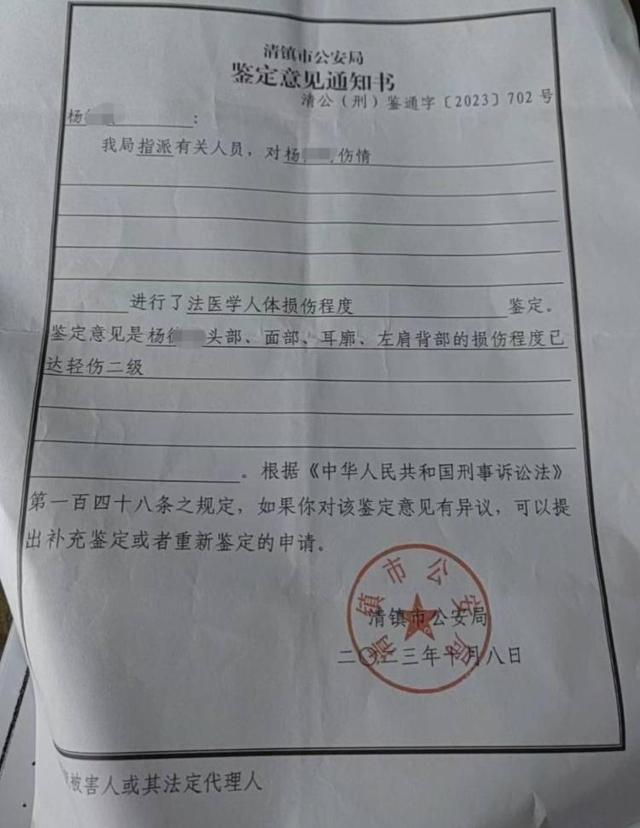 清镇市公安局
鉴定意见通知书
清公(刑)鉴通字〔2023〕702号
杨 :
我局指派有关人员,对杨 伤情
进行了法医学人体损伤程度 鉴定。
鉴定意见是杨 头部、面部、耳廓、左肩背部的损伤程度已
达轻伤二级
。根据《中华人民共和国刑事诉讼法》
第一百四十八条之规定,如果你对该鉴定意见有异议,可以提
出补充鉴定或者重新鉴定的申请。
清镇市公安局
清镇市公安局
二〇二三年十月八日
被害人或其法定代理人